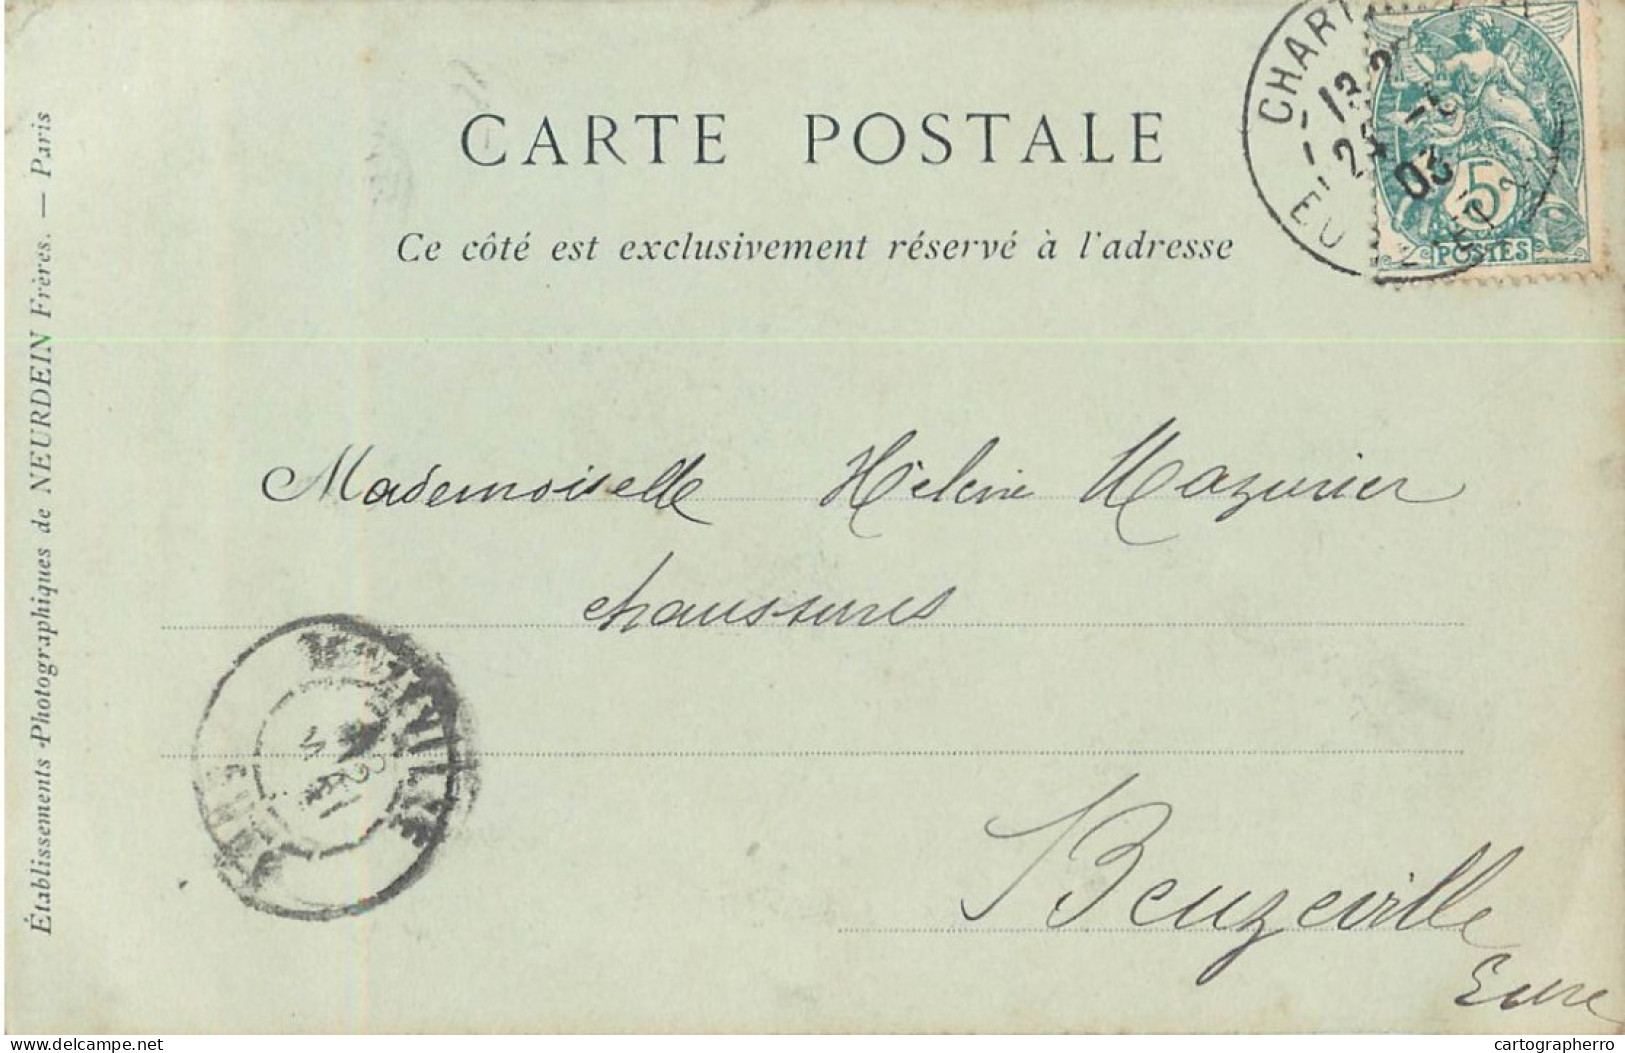 CARTE POSTALE
Ce côté est exclusivement réservé à l'adresse
Établissements Photographiques de NEURDEIN Frères. — Paris
CHART
03
EU
5
POSTES
Mademoiselle Hélène Mazurier
chaussures
Beuzeville
Eure
delcampe.net
cartographerro